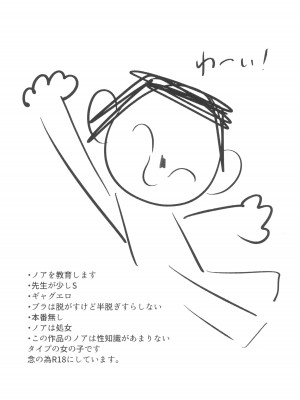 わ〜い!
・ノアを教育します
・先生が少しS
・ギャグエロ
・ブラは脱がすけど半脱ぎすらしない
・本番無し
・ノアは処女
・この作品のノアは性知識があまりない
タイプの女の子です
念の為R18にしています。